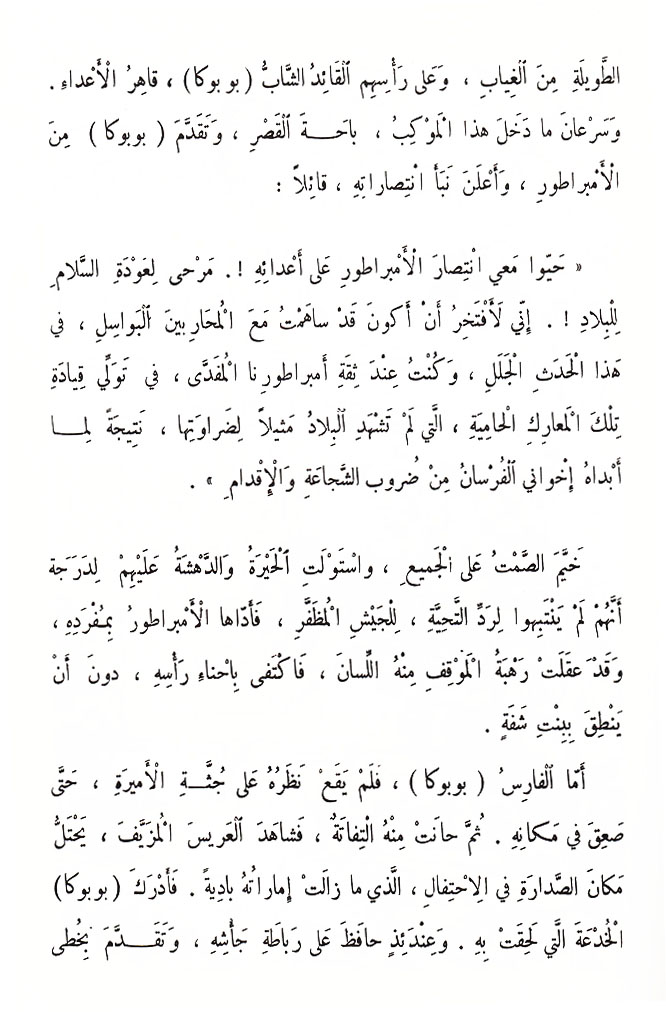 الطَّويلَةِ مِنَ ٱلْغِيابِ ، وَعَلى رَأْسِهِم ٱلْقَائِدُ الشَّابُّ ( بوبوكا ) ، قاهِرُ الْأَعْداءِ .
وَسَرْعانَ ما دَخَلَ هذا الْمَوْكِبُ ، باحَـةَ ٱلْقَصْرِ ، وَتَقَدَّمَ ( بوبوكا ) مِنَ
الْأَمْبراطورِ ، وَأَعْلَنَ نَبَأَ انْتِصاراتِهِ ، قائِلاً :
« حَيّوا مَعي انْتِصارَ الْأَمْبراطورِ عَلى أَعْدائِهِ ! . مَرْحى لِعَوْدَةِ السَّلامِ
لِلْبِلادِ ! . إِنّي لَأَفْتَخِرُ أَنْ أَكونَ قَدْ ساهَمْتُ مَعَ الْمُحَارِبينَ ٱلْبَواسِلِ ، في
هَذا الْحَدَثِ الْجَلَلِ ، وَكُنْتُ عِنْدَ ثِقَةِ أَمبراطورِنا الْمُفَدَّى ، في تَوَلّي قِيادَةِ
تِلْكَ الْمَعارِكِ الْحامِيَةِ ، الَّتي لَمْ تَشْهَدِ ٱلْبِلادُ مَثيلاً لِضَراوَتِها ، نَتيجَةً لِمـا
أَبْداهُ إِخْواني ٱلْفُرْسانُ مِنْ ضُروبِ الشَّجاعَةِ وَالْإِقْدامِ » .
خَيَّمَ الصَّمْتُ عَلى الْجَميعِ ، واسْتَوْلَتِ ٱلْحَيْرَةُ وَالدَّهْشَةُ عَلَيْهِمْ لِدَرَجَة
أَنَّهُمْ لَمْ يَنْتَبِهوا لِرَدِّ التَّحِيَّةِ ، لِلْجَيْشِ الْمُظَفَّرِ ، فَأَدّاها الْأَمْبراطورُ بِمُفْرَدِهِ ،
وَقَدْ عَقَلَتْ رَهْبَةُ الْمَوْقِفِ مِنْهُ اللِّسانَ ، فَاكْتَفى بِاحْناءِ رَأْسِهِ ، دونَ أَنْ
يَنْطِقَ بِبِنْتِ شَفَةٍ .
أَمّا ٱلْفارِسُ ( بوبوكا ) ، فَلَمْ يَقَعْ نَظَرُهُ عَلى جُثَّـةِ الْأَميرَةِ ، حَتَّى
صَعِقَ في مَكانِهِ . ثُمَّ حانَتْ مِنْهُ الْتِفاتَةٌ ، فَشاهَدَ ٱلْعَريسَ الْمُزَيَّفَ ، يَحْتَلُّ
مَكانَ الصَّدارَةِ في الِاحْتِفالِ ، الَّذي ما زالَتْ إِماراتُهُ بادِيةً . فَأَدْرَكَ ( بوبوكا )
الْخُدْعَةَ الَّتي لَحِقَتْ بِهِ . وَعِنْدَئِذٍ حافَظَ عَلى رَباطَةِ جَأْشِهِ ، وَتَقَـدَّمَ بِخُطى